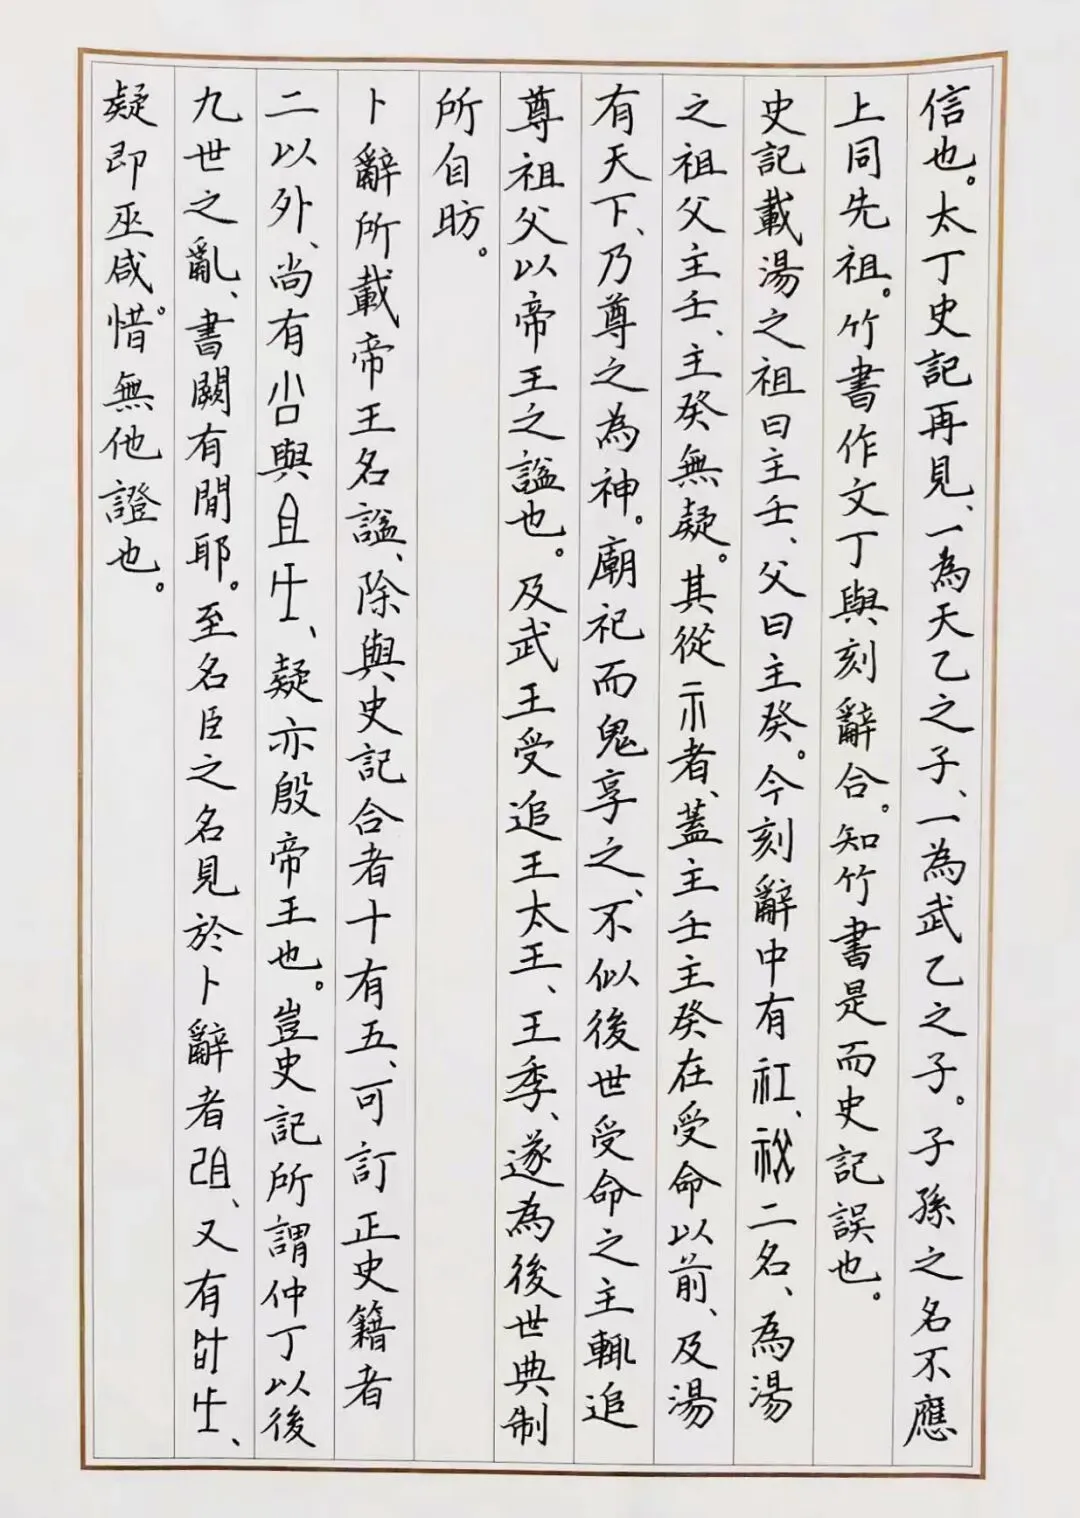 信也。太丁史記再見、一為天乙之子、一為武乙之子。子孫之名不應
上同先祖。竹書作文丁與刻辭合。知竹書是而史記誤也。
史記載湯之祖曰主壬、父曰主癸。今刻辭中有、二名、為湯
之祖父主壬、主癸無疑。其從示者、蓋主壬主癸在受命以前、及湯
有天下、乃尊之為神。廟祀而鬼享之、不似後世受命之主輒追
尊祖父以帝王之謚也。及武王受追王太王、王季、遂為後世典制
所自昉。
卜辭所載帝王名謚、除與史記合者十有五、可訂正史籍者
二以外、尚有與且、疑亦殷帝王也。豈史記所謂仲丁以後
九世之亂、書闕有間耶。至名臣之名見於卜辭者、又有、
疑即巫咸。惜無他證也。